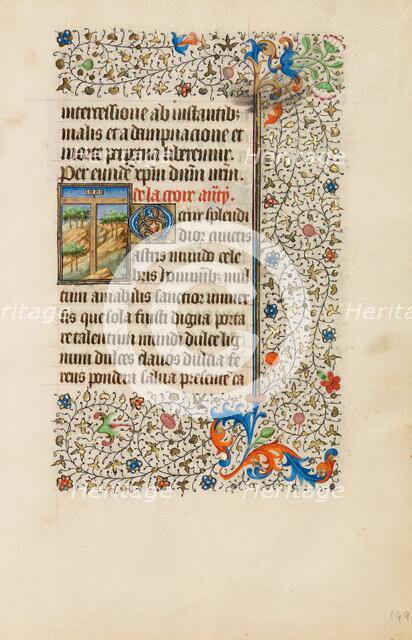 intercessione ab instantib;
malis et a dampnacione et
morte perpetua liberemur.
Per eunde xpm dnm nrm.
De la croix anty.
INRI
O crux splendi
dior cunctis
astris mundo cele
bris hominib; mul
tum amabilis sanctior univer
sis que sola fuisti digna porta
re talentum mundi dulce lig
num dulces clavos dulcia fe
rens pondera salva presente ca
199
Heritage
Heritage
Heritage
Heritage
Heritage
Heritage